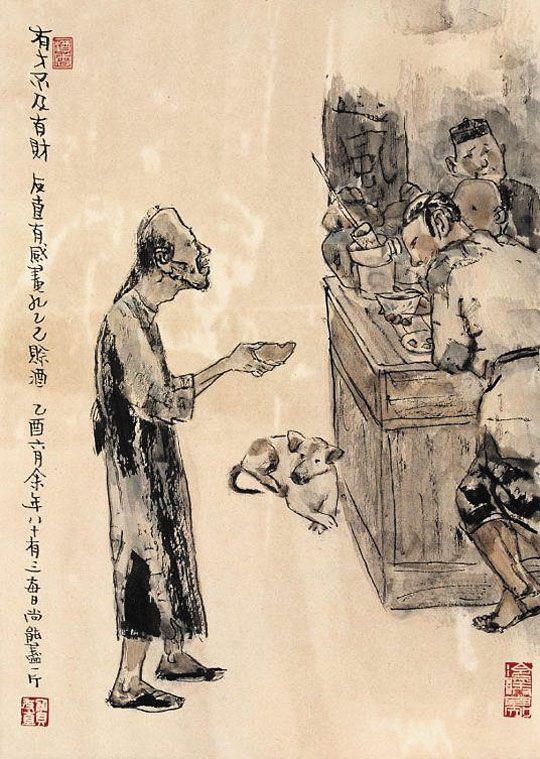 有才不及有財 友直有感畫孔乙己賒酒 乙酉六月余年八十有三每日尚能盡一斤
風